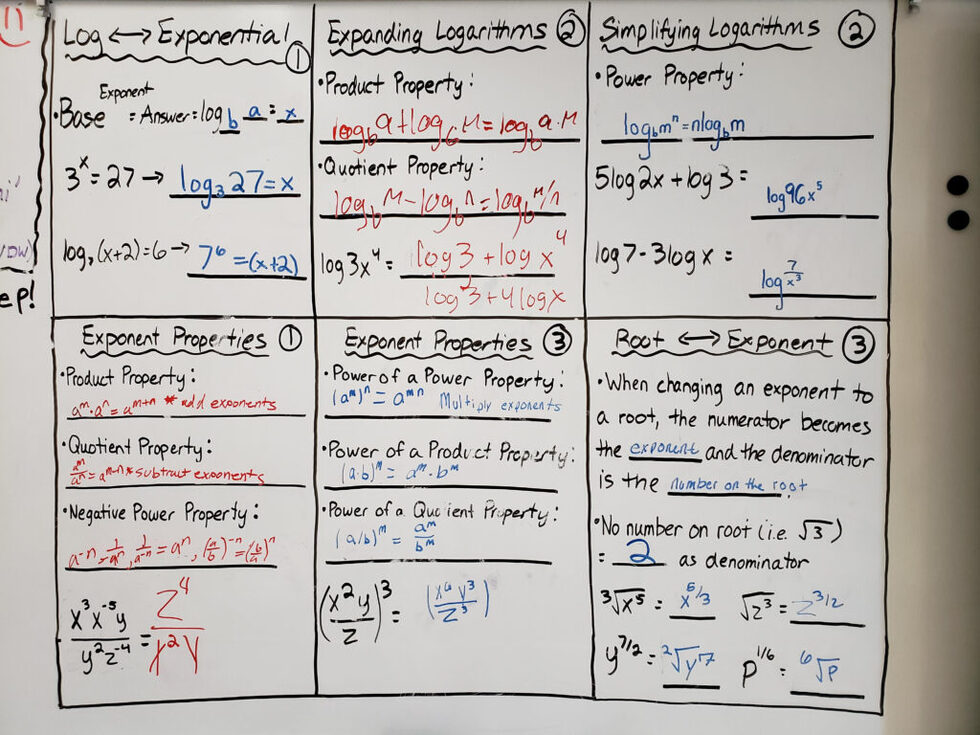 Log ↔ Exponential ①
Exponent
•Base = Answer = log b a = x
3ˣ = 27 → log₃27 = x
log₇(x+2) = 6 → 7⁶ = (x+2)
Expanding Logarithms ②
•Product Property:
log_b a + log_b M = log_b a·M
•Quotient Property:
log_b M - log_b n = log_b M/n
log 3x⁴ = log 3 + log x⁴
log 3 + 4 log x
Simplifying Logarithms ②
•Power Property:
log_b mⁿ = n log_b m
5 log 2x + log 3 =
log 96x⁵
log 7 - 3 log x =
log 7/x³
Exponent Properties ①
•Product Property:
aᵐ·aⁿ = aᵐ⁺ⁿ * add exponents
•Quotient Property:
aᵐ/aⁿ = aᵐ⁻ⁿ * subtract exponents
•Negative Power Property:
a⁻ⁿ = 1/aⁿ, 1/a⁻ⁿ = aⁿ, (a/b)⁻ⁿ = (b/a)ⁿ
x³x⁻⁵y / y²z⁻⁴ = z⁴ / x²y
Exponent Properties ③
•Power of a Power Property:
(aᵐ)ⁿ = aᵐⁿ Multiply exponents
•Power of a Product Property:
(a·b)ᵐ = aᵐ·bᵐ
•Power of a Quotient Property:
(a/b)ᵐ = aᵐ/bᵐ
(x²y/z)³ = (x⁶y³/z³)
Root ↔ Exponent ③
•When changing an exponent to
a root, the numerator becomes
the exponent and the denominator
is the number on the root.
•No number on root (i.e. √3)
= 2 as denominator
³√x⁵ = x⁵/³ √z³ = z³/²
y⁷/² = ²√y⁷ p¹/⁶ = ⁶√p
ep!